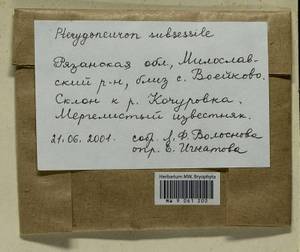 Pterygoneuron subsessile
Рязанская обл, Милослав-
ский р-н, близ с. Воейково.
Склон к р. Кочуровка.
Мергелистый известняк.
21.06.2001. собр. Л.Ф. Волоснова
опр. Е. Игнатова
Herbarium MW, Bryophyta
MW 9 061 300